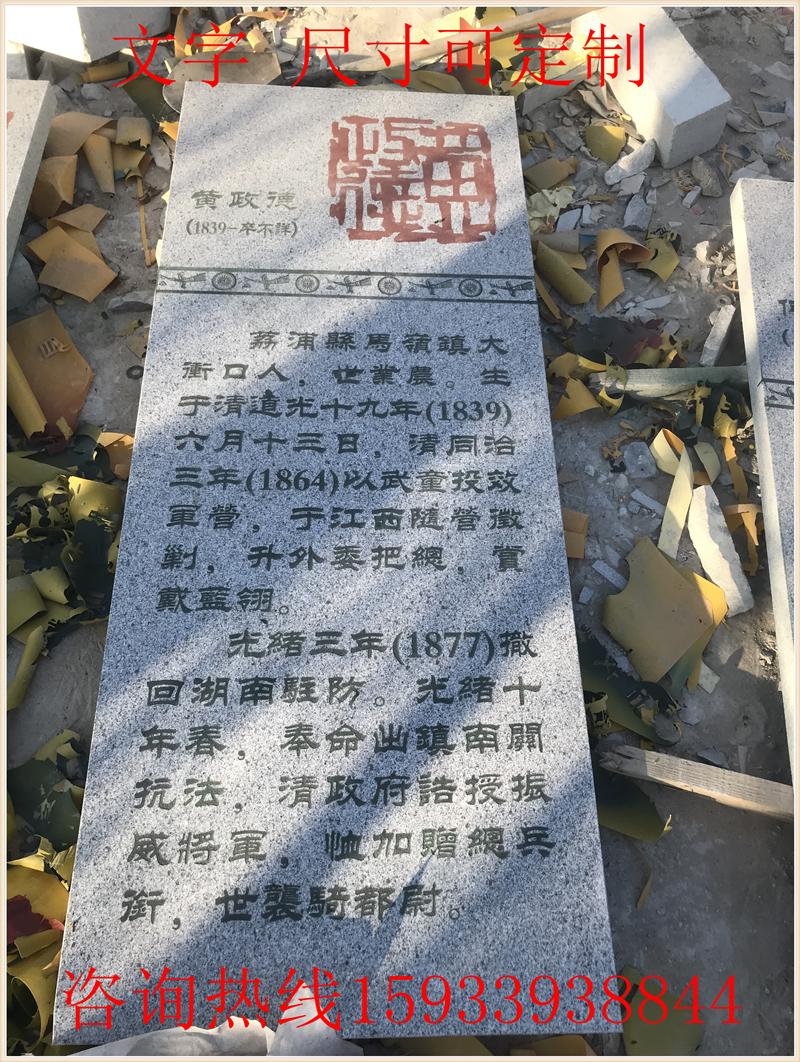 文字 尺寸可定制
黄政德
(1839-卒不詳)
荔浦縣馬嶺鎮大
衝口人，世業農。生
于清道光十九年(1839)
六月十三日，清同治
三年(1864)以武童投效
軍營，于江西隨營徵
剿，升外委把總，賞
戴藍翎。
光緒三年(1877)撤
回湖南駐防。光緒十
年春，奉命出鎮南關
抗法，清政府誥授振
威將軍，恤加贈總兵
銜，世襲騎都尉。
咨询热线15933938844